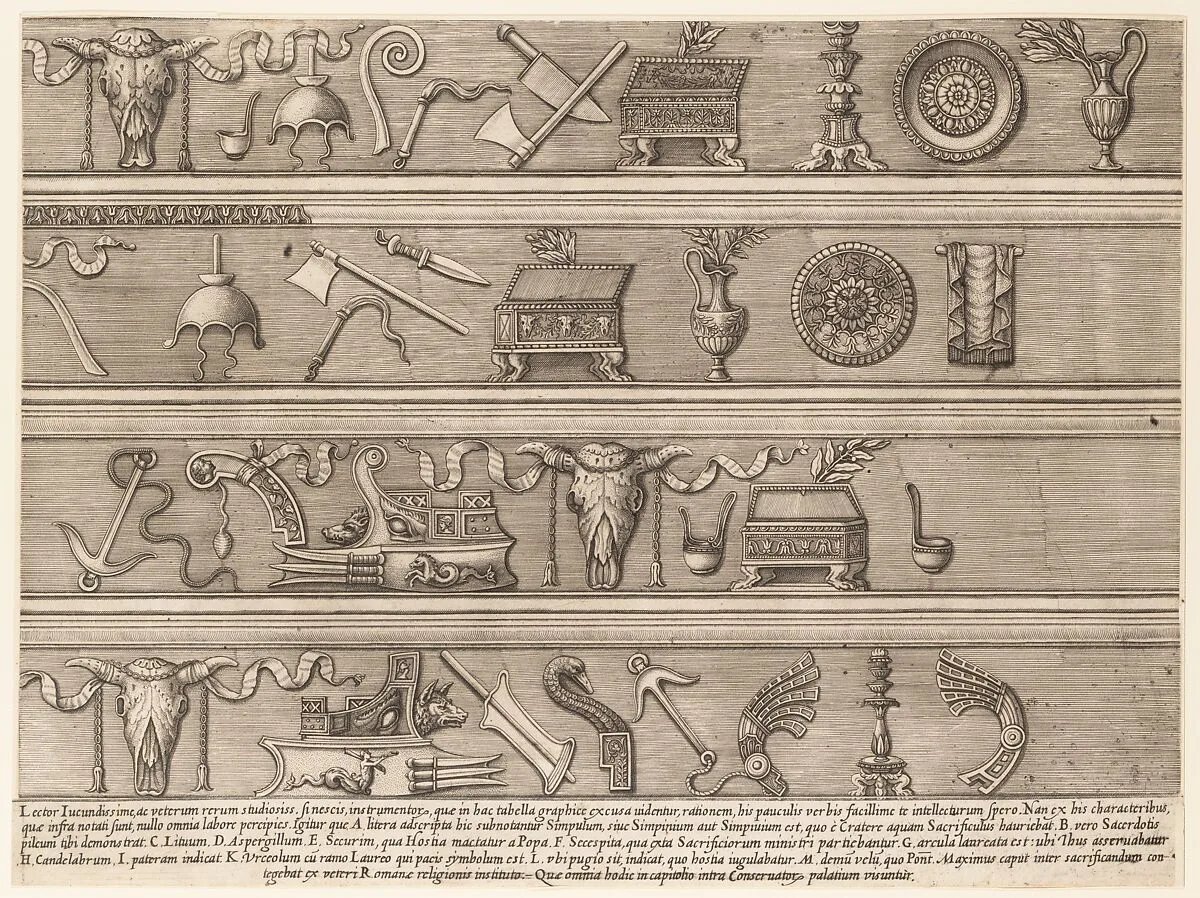 Lector Iucundissime, ac veterum rerum studiosiss. si nescis, instrumentorꝫ, quæ in hac tabella graphice excusa uidentur, rationem, his pauculis verbis facillime te intellecturum spero. Nan ex his characteribus,
quæ infra notati sunt, nullo omnia labore percipies. Igitur que A. litera adscripta hic subnotantur Simpulum, siue Simpinium aut Simpiuium est, quo è Cratere aquam Sacrificulus hauriebat. B. vero Sacerdotis
pileum tibi demonstrat. C. Lituum. D. Aspergillum. E. Securim, qua Hostia mactatur a Popa. F. Secespita, qua exta Sacrificiorum ministri partiebantur. G. arcula laureata est: ubi Thus asseruabatur
H. Candelabrum, I. pateram indicat. K. Vrceolum cū ramo Laureo qui pacis symbolum est. L. vbi pugio sit, indicat, quo hostia iugulabatur. M. demū velū, quo Pont. Maximus caput inter sacrificandum con-
tegebat ex veteri Romanæ religionis instituto.— Quæ omnia hodie in capitolio intra Conseruatorꝫ palatium visuntur.